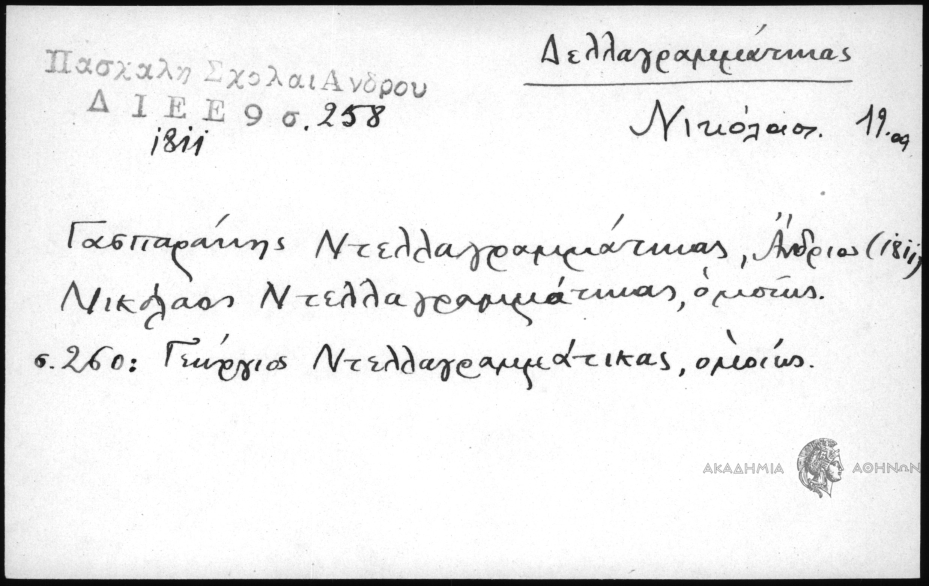 Πασχαλη Σχολαι Ανδρου
Δ Ι Ε Ε 9 σ. 258
1811
Δελλαγραμμάτικας
Νικόλαος. 19.09
Γασπαράκης Ντελλαγραμμάτικας, Ἄνδριος (1811)
Νικόλαος Ντελλαγραμμάτικας, ὁμοίως.
σ. 260: Γεώργιος Ντελλαγραμμάτικας, ὁμοίως.
ΑΚΑΔΗΜΙΑ ΑΘΗΝΩΝ